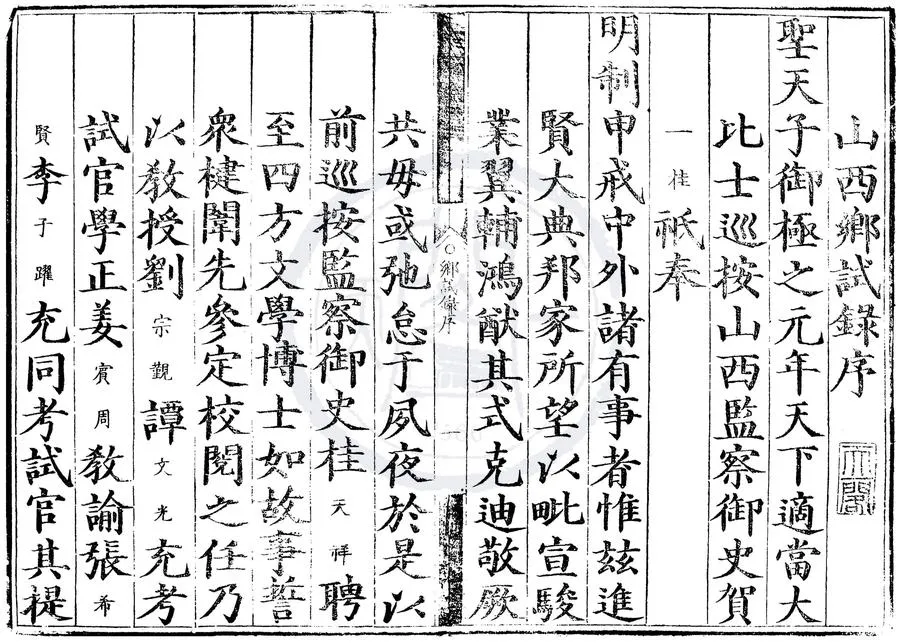 山西鄉試錄序
聖天子御極之元年天下適當大
比士巡按山西監察御史賀
一桂祇奉
明制申戒中外諸有事者惟茲進
賢大典邦家所望以毗宣駿
業翼輔鴻猷其式克迪敬厥
鄉試錄序
共毋或弛怠于夙夜於是以
前巡按監察御史桂天祥聘
至四方文學博士如故事誓
衆楗闈先參定校閱之任乃
以敎授劉宗觀譚文光充考
試官學正姜賓周敎諭張希
賢李子躍充同考試官其禔